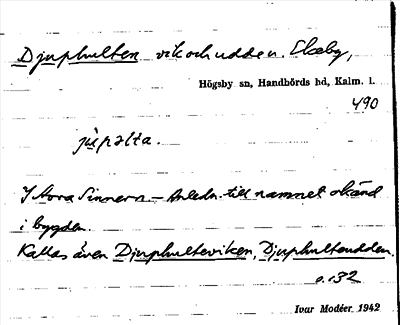 Djuphulten vik och udden. Ekeby,
Högsby sn, Handbörds hd, Kalm. l.
490
jùpəlta.
I Stora Sinnern. — Anledn. till namnet okänd
i bygden.
Kallas även Djuphulteviken, Djuphulteudden.
o. 132
Ivar Modéer 1942